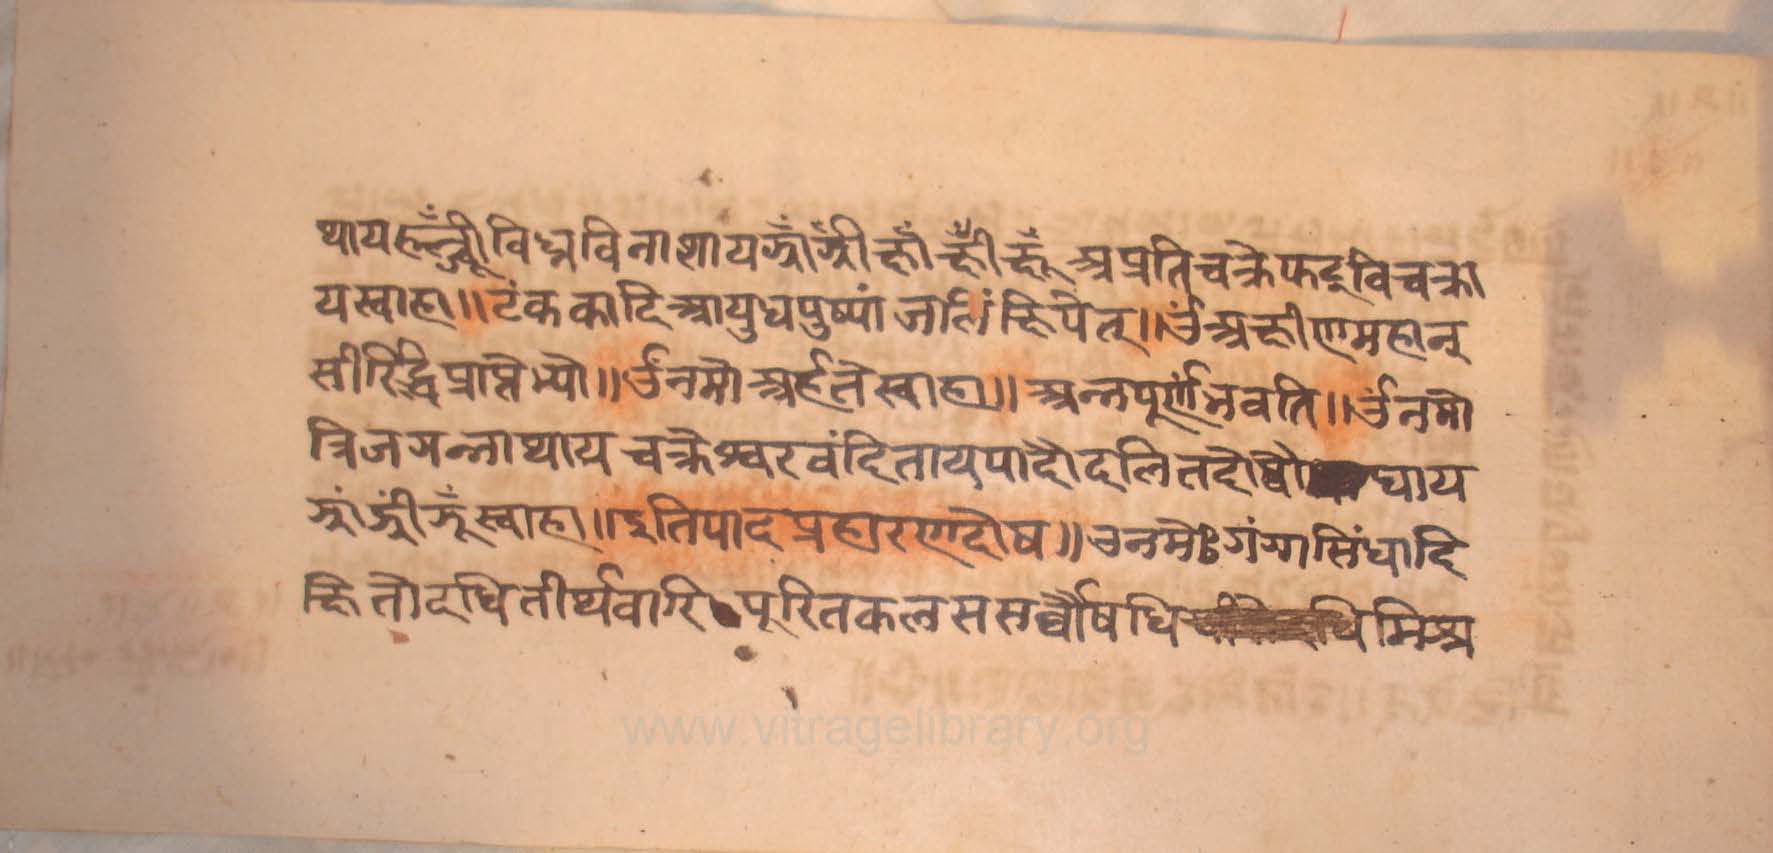 थायह्ल्व्र्यूँ विघ्नविनाशाय झ्राँ झ्रीँ ह्राँ ह्रीँ ह्रूँ अप्रतिचक्रे फट् विचक्रा
य स्वाहा ॥ टंककादि आयुधपुष्पां जलिं क्षिपेत् ॥ ॐ अक्षीणमहान्
सीरिद्धिप्राप्तेभ्यो ॥ ॐ नमो अर्हते स्वाहा ॥ अन्नपूर्णं भवति ॥ ॐ नमो
त्रिजगन्नाथाय चक्रेश्वरवंदिताय पादौदलितदोषौ घाय
झ्रां झ्रीं झ्रूँ स्वाहा ॥ इति पादप्रहारणदोष ॥ ॐ नमो गंगासिंधादि
क्षितोदधितीर्थवारि पूरितकलससर्वौषधि मिश्र
www.vitragelibrary.org